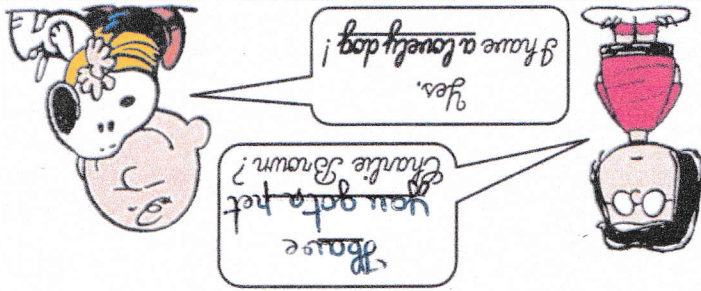 Have
you got a pet
Charlie Brown?
Yes,
I have a lovely dog!